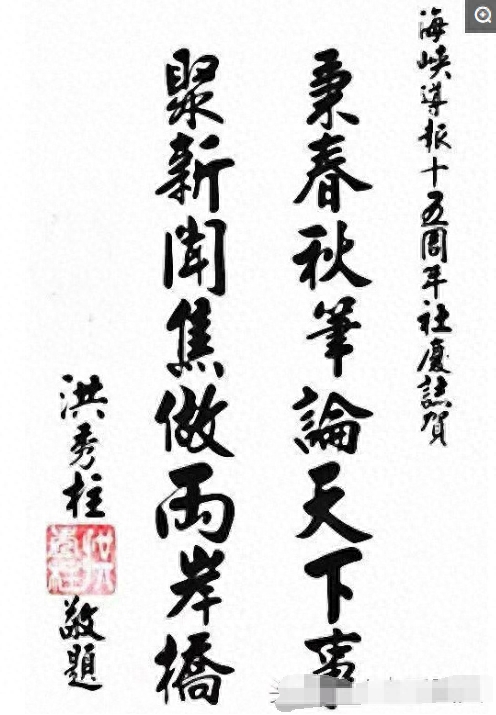 海峡導报十五周年社慶誌賀
秉春秋筆論天下事
聚新聞焦做兩岸橋
洪秀柱
敬題